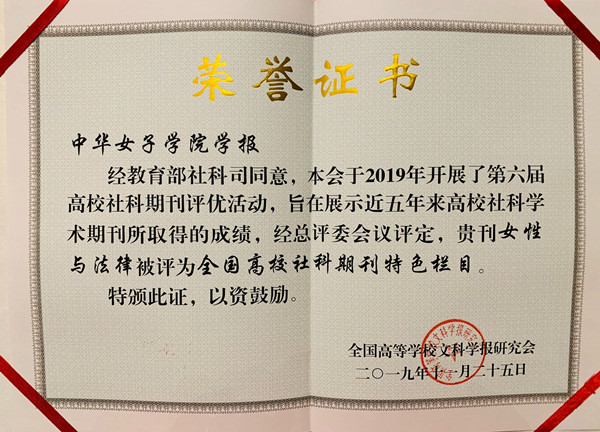 荣誉证书
中华女子学院学报
经教育部社科司同意，本会于2019年开展了第六届
高校社科期刊评优活动，旨在展示近五年来高校社科学
术期刊所取得的成绩，经总评委会议评定，贵刊女性
与法律被评为全国高校社科期刊特色栏目。
特颁此证，以资鼓励。
全国高等学校文科学报研究会
二〇一九年十一月二十五日